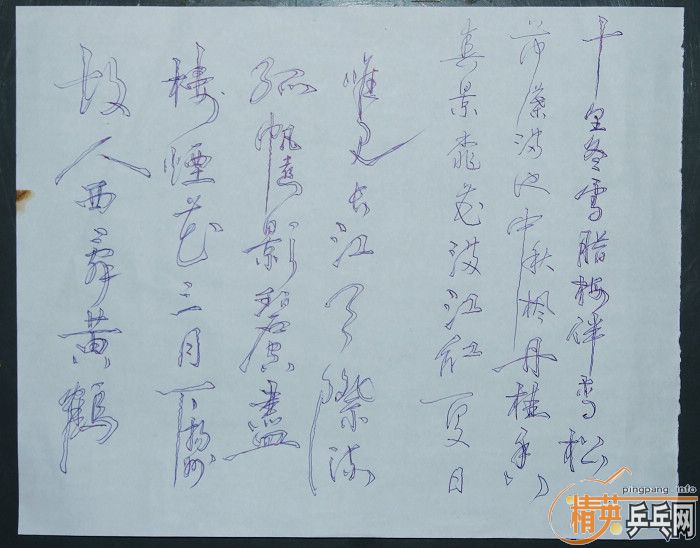 故人西辞黄鶴
楼煙花三月下揚州
孤帆遠影碧空盡
唯见长江天際流
景桃花满江红夏日
满池中秋枫丹桂香
十里冬雪腊梅伴雪松
pingpang.info
精英乒乓网